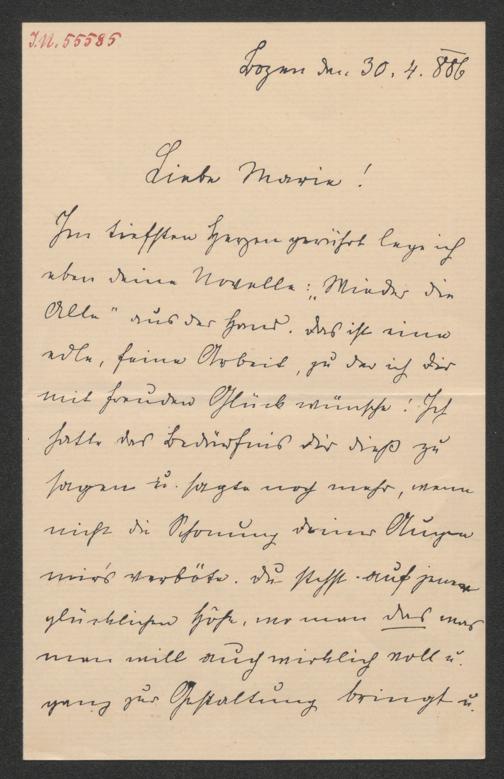 I.N. 55585
Bozen den 30. 4. 886
Liebe Marie!
Im tiefsten Herzen gerührt lege ich
eben deine Novelle: „Wieder die
Alte" aus der Hand. Das ist eine
edle, feine Arbeit, zu der ich dir
mit Freuden Glück wünsche! Ich
hatte das Bedürfnis dir dieß zu
sagen u. sagte noch mehr, wenn
nicht die Schonung deiner Augen
mir's verböte. Du stehst auf jener
glücklichen Höhe, wo man das was
man will auch wirklich voll u.
ganz zur Gestaltung bringt u.